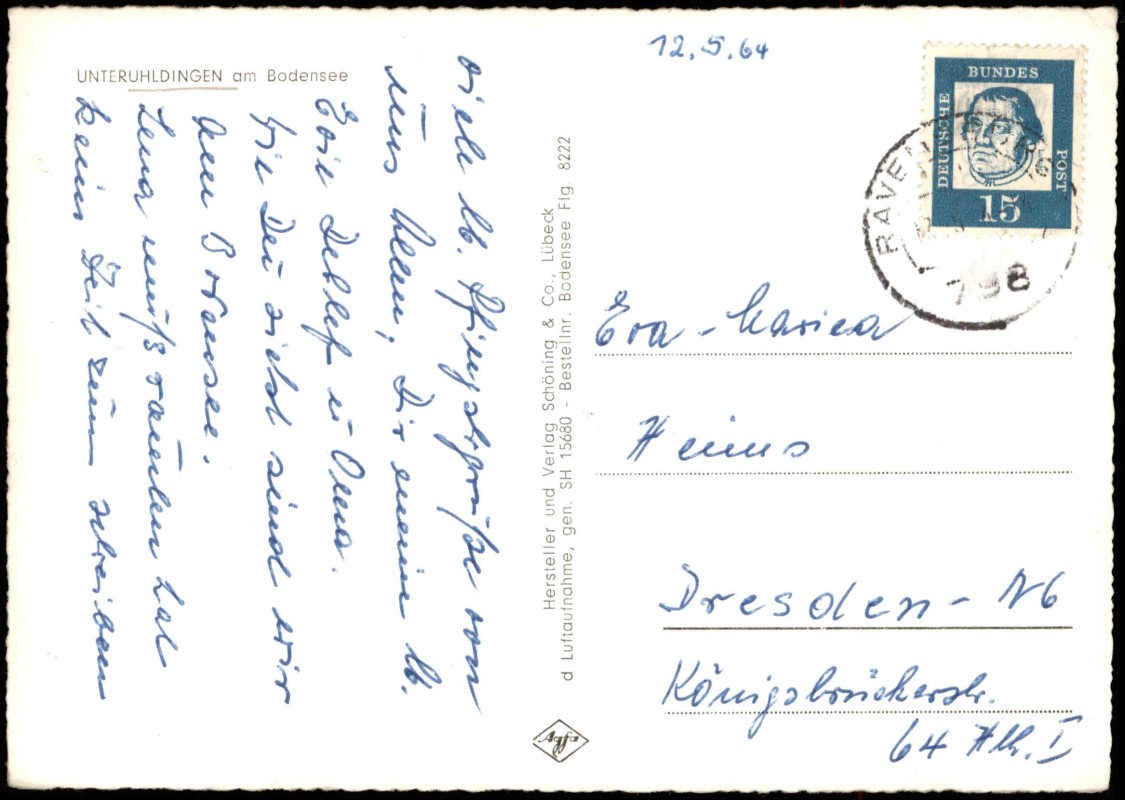 UNTERUHLDINGEN am Bodensee
viele lb. Pfingstgrüße von
uns allen, Dir meine lb.
Evi Detlef u Oma.
Wie Du siehst sind wir
am Bodensee.
Lena muß hat
keine Zeit zum schreiben
Hersteller und Verlag Schöning & Co., Lübeck
d Luftaufnahme, gen. SH 15680 - Bestellnr. Bodensee Flg. 8222
Agfa
12.5.64
DEUTSCHE BUNDES POST
15
RAVEN
798
Eva-Maria
Heims
Dresden-N6
Königsbrückerstr.
64 Hth. I